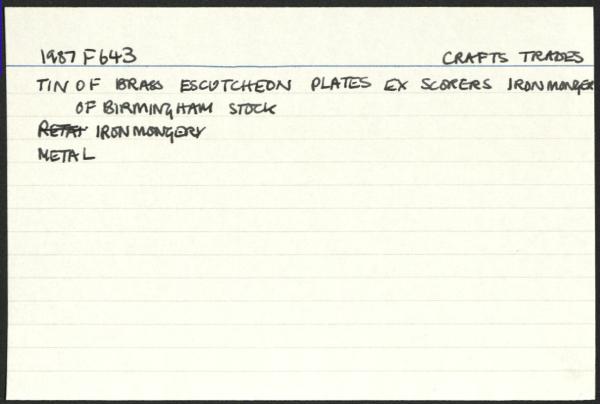 1987 F643 CRAFTS TRADES
TIN OF BRASS ESCUTCHEON PLATES EX SCORERS IRONMONGER
OF BIRMINGHAM STOCK
IRONMONGERY
METAL